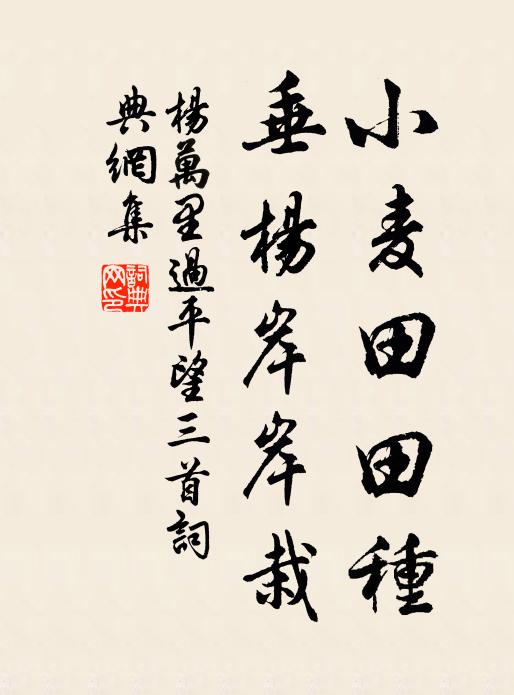 小麦田田種
垂楊岸岸栽
楊萬里過平望三首詞
典網集
詞典
网印